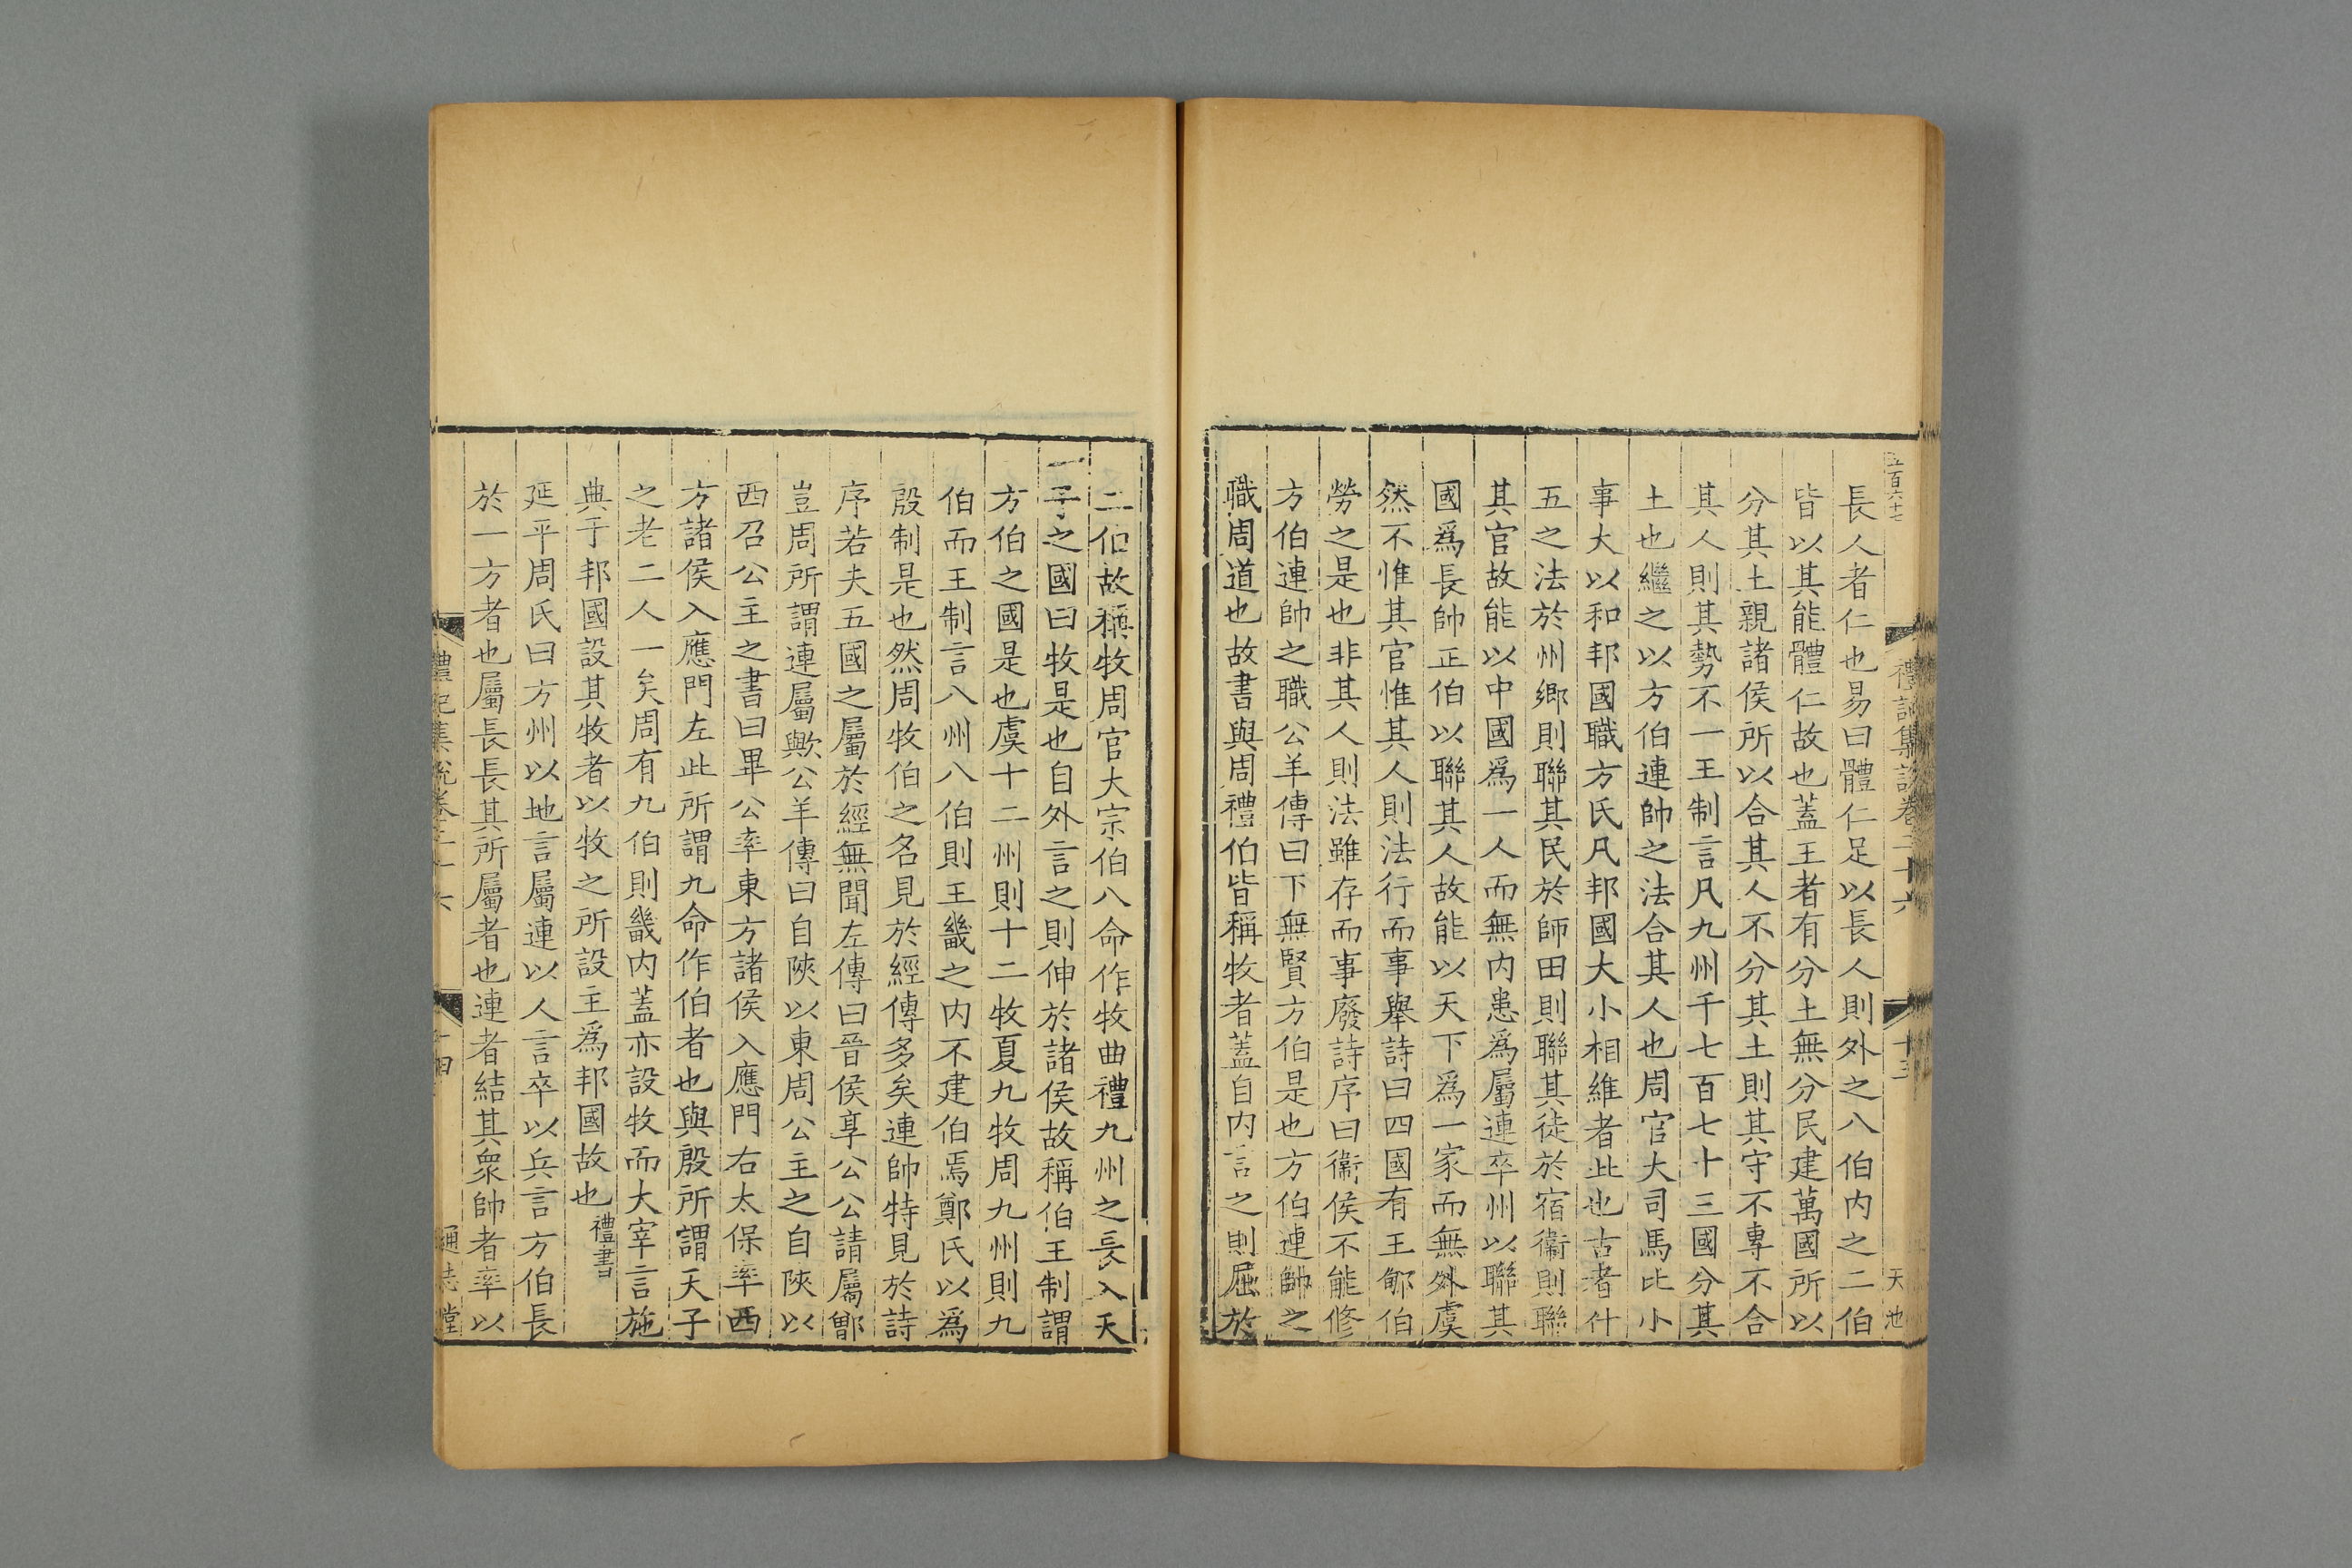 五百六十七
禮記集說卷二十六
十三
天池
長人者仁也易曰體仁足以長人則外之八伯内之二伯
皆以其能體仁故也蓋王者有分土無分民建萬國所以
分其土親諸侯所以合其人不分其土則其守不專不合
其人則其勢不一王制言凡九州千七百七十三國分其
土也繼之以方伯連帥之法合其人也周官大司馬比小
事大以和邦國職方氏凡邦國大小相維者此也古者什
五之法於州鄉則聯其民於師田則聯其徒於宿衞則聯
其官故能以中國爲一人而無内患爲屬連卒州以聯其
國爲長帥正伯以聯其人故能以天下爲一家而無外虞
然不惟其官惟其人則法行而事舉詩曰四國有王郇伯
勞之是也非其人則法雖存而事廢詩序曰衞侯不能修
方伯連帥之職公羊傳曰下無賢方伯是也方伯連帥之
職周道也故書與周禮伯皆稱牧者蓋自内言之則屈於
二伯故稱牧周官大宗伯八命作牧曲禮九州之長入天
子之國曰牧是也自外言之則伸於諸侯故稱伯王制謂
方伯之國是也虞十二州則十二牧夏九牧周九州則九
伯而王制言八州八伯則王畿之内不建伯焉鄭氏以爲
殷制是也然周牧伯之名見於經傳多矣連帥特見於詩
序若夫五國之屬於經無聞左傳曰晉侯享公公請屬鄫
豈周所謂連屬歟公羊傳曰自陝以東周公主之自陝以
西召公主之書曰畢公率東方諸侯入應門右太保率西
方諸侯入應門左此所謂九命作伯者也與殷所謂天子
之老二人一矣周有九伯則畿内蓋亦設牧而大宰言施
典于邦國設其牧者以牧之所設主爲邦國故也禮書
延平周氏曰方州以地言屬連以人言卒以兵言方伯長
於一方者也屬長長其所屬者也連者結其衆帥者率以
禮記集說卷二十六
十四
通志堂